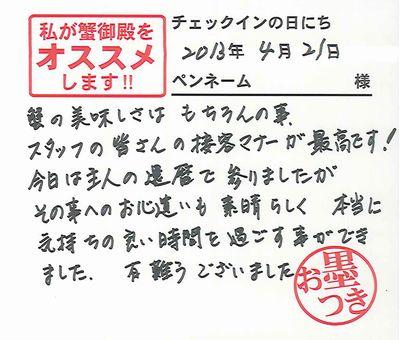 私が蟹御殿を
オススメ
します!!
チェックインの日にち
2013年 4月 21日
ペンネーム 様
蟹の美味しさは もちろんの事、
スタッフの皆さんの接客マナーが最高です!
今日は主人の還暦で参りましたが
その事へのお心遣いも 素晴らしく 本当に
気持ちの良い時間を過ごす事ができ
ました。 有難うございました
お墨つき